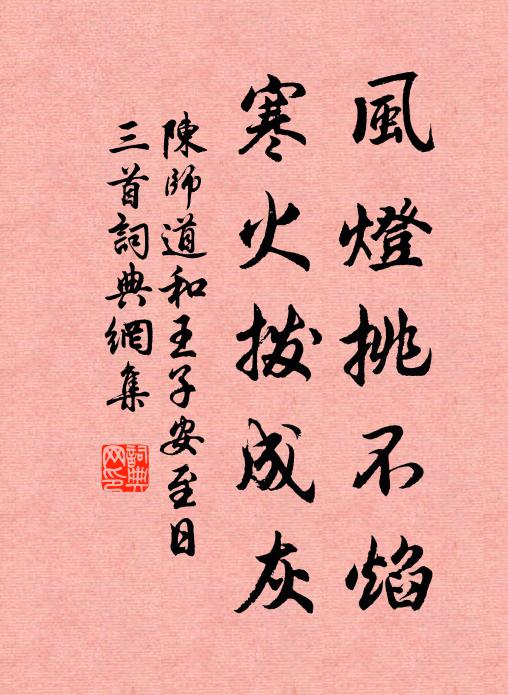 風燈挑不焰
寒火撥成灰
陳師道和王子安至日
三首詞典網集
詞典
网印